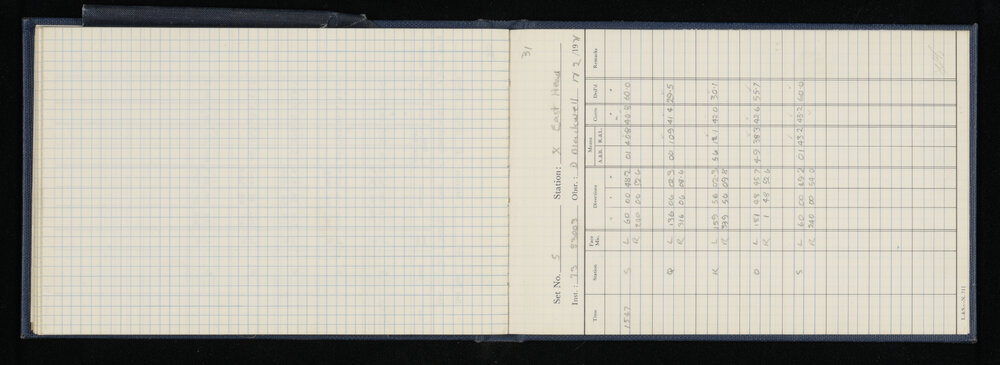 31
Set No. 5 Station: X East Head
Inst.: 75 93003 Obsr.: D Blackwell 17 2 1971
Time Station Face Mic. Directions Means Corrn Ded'd. Remarks
A.&B. R.&L.
° ' " ' " " " ' "
1547 S L 60 00 48.2 01 40.8 40.8 60.0
R 240 00 52.6
Q L 136 06 02.3 00 10.9 41.4 29.5
R 316 06 08.6
R L 159 56 02.3 56 12.1 42.0 30.1
R 339 56 09.8
O L 181 48 45.7 49 38.3 42.6 55.7
R 1 48 52.6
S L 60 00 49.2 01 43.2 43.2 60.0
R 240 00 54.0
L.&S.—N. 711